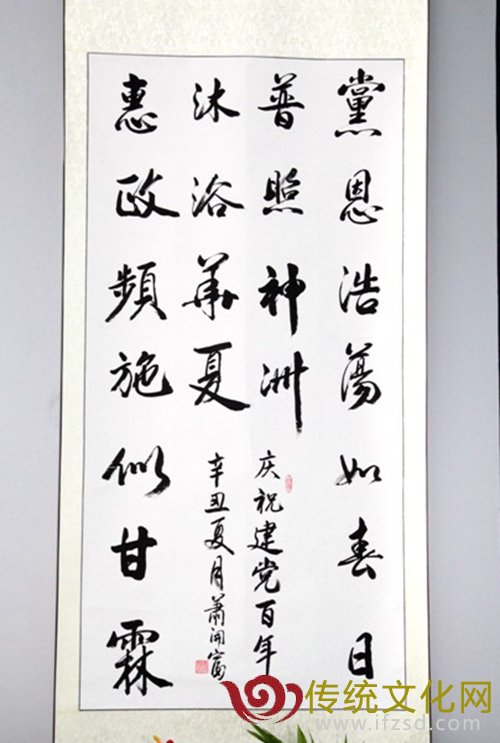 黨恩浩蕩如春日
普照神洲
惠政頻施似甘霖
沐浴華夏
庆祝建党百年
辛丑夏月蕭
传统文化网
www.ifzsd.com